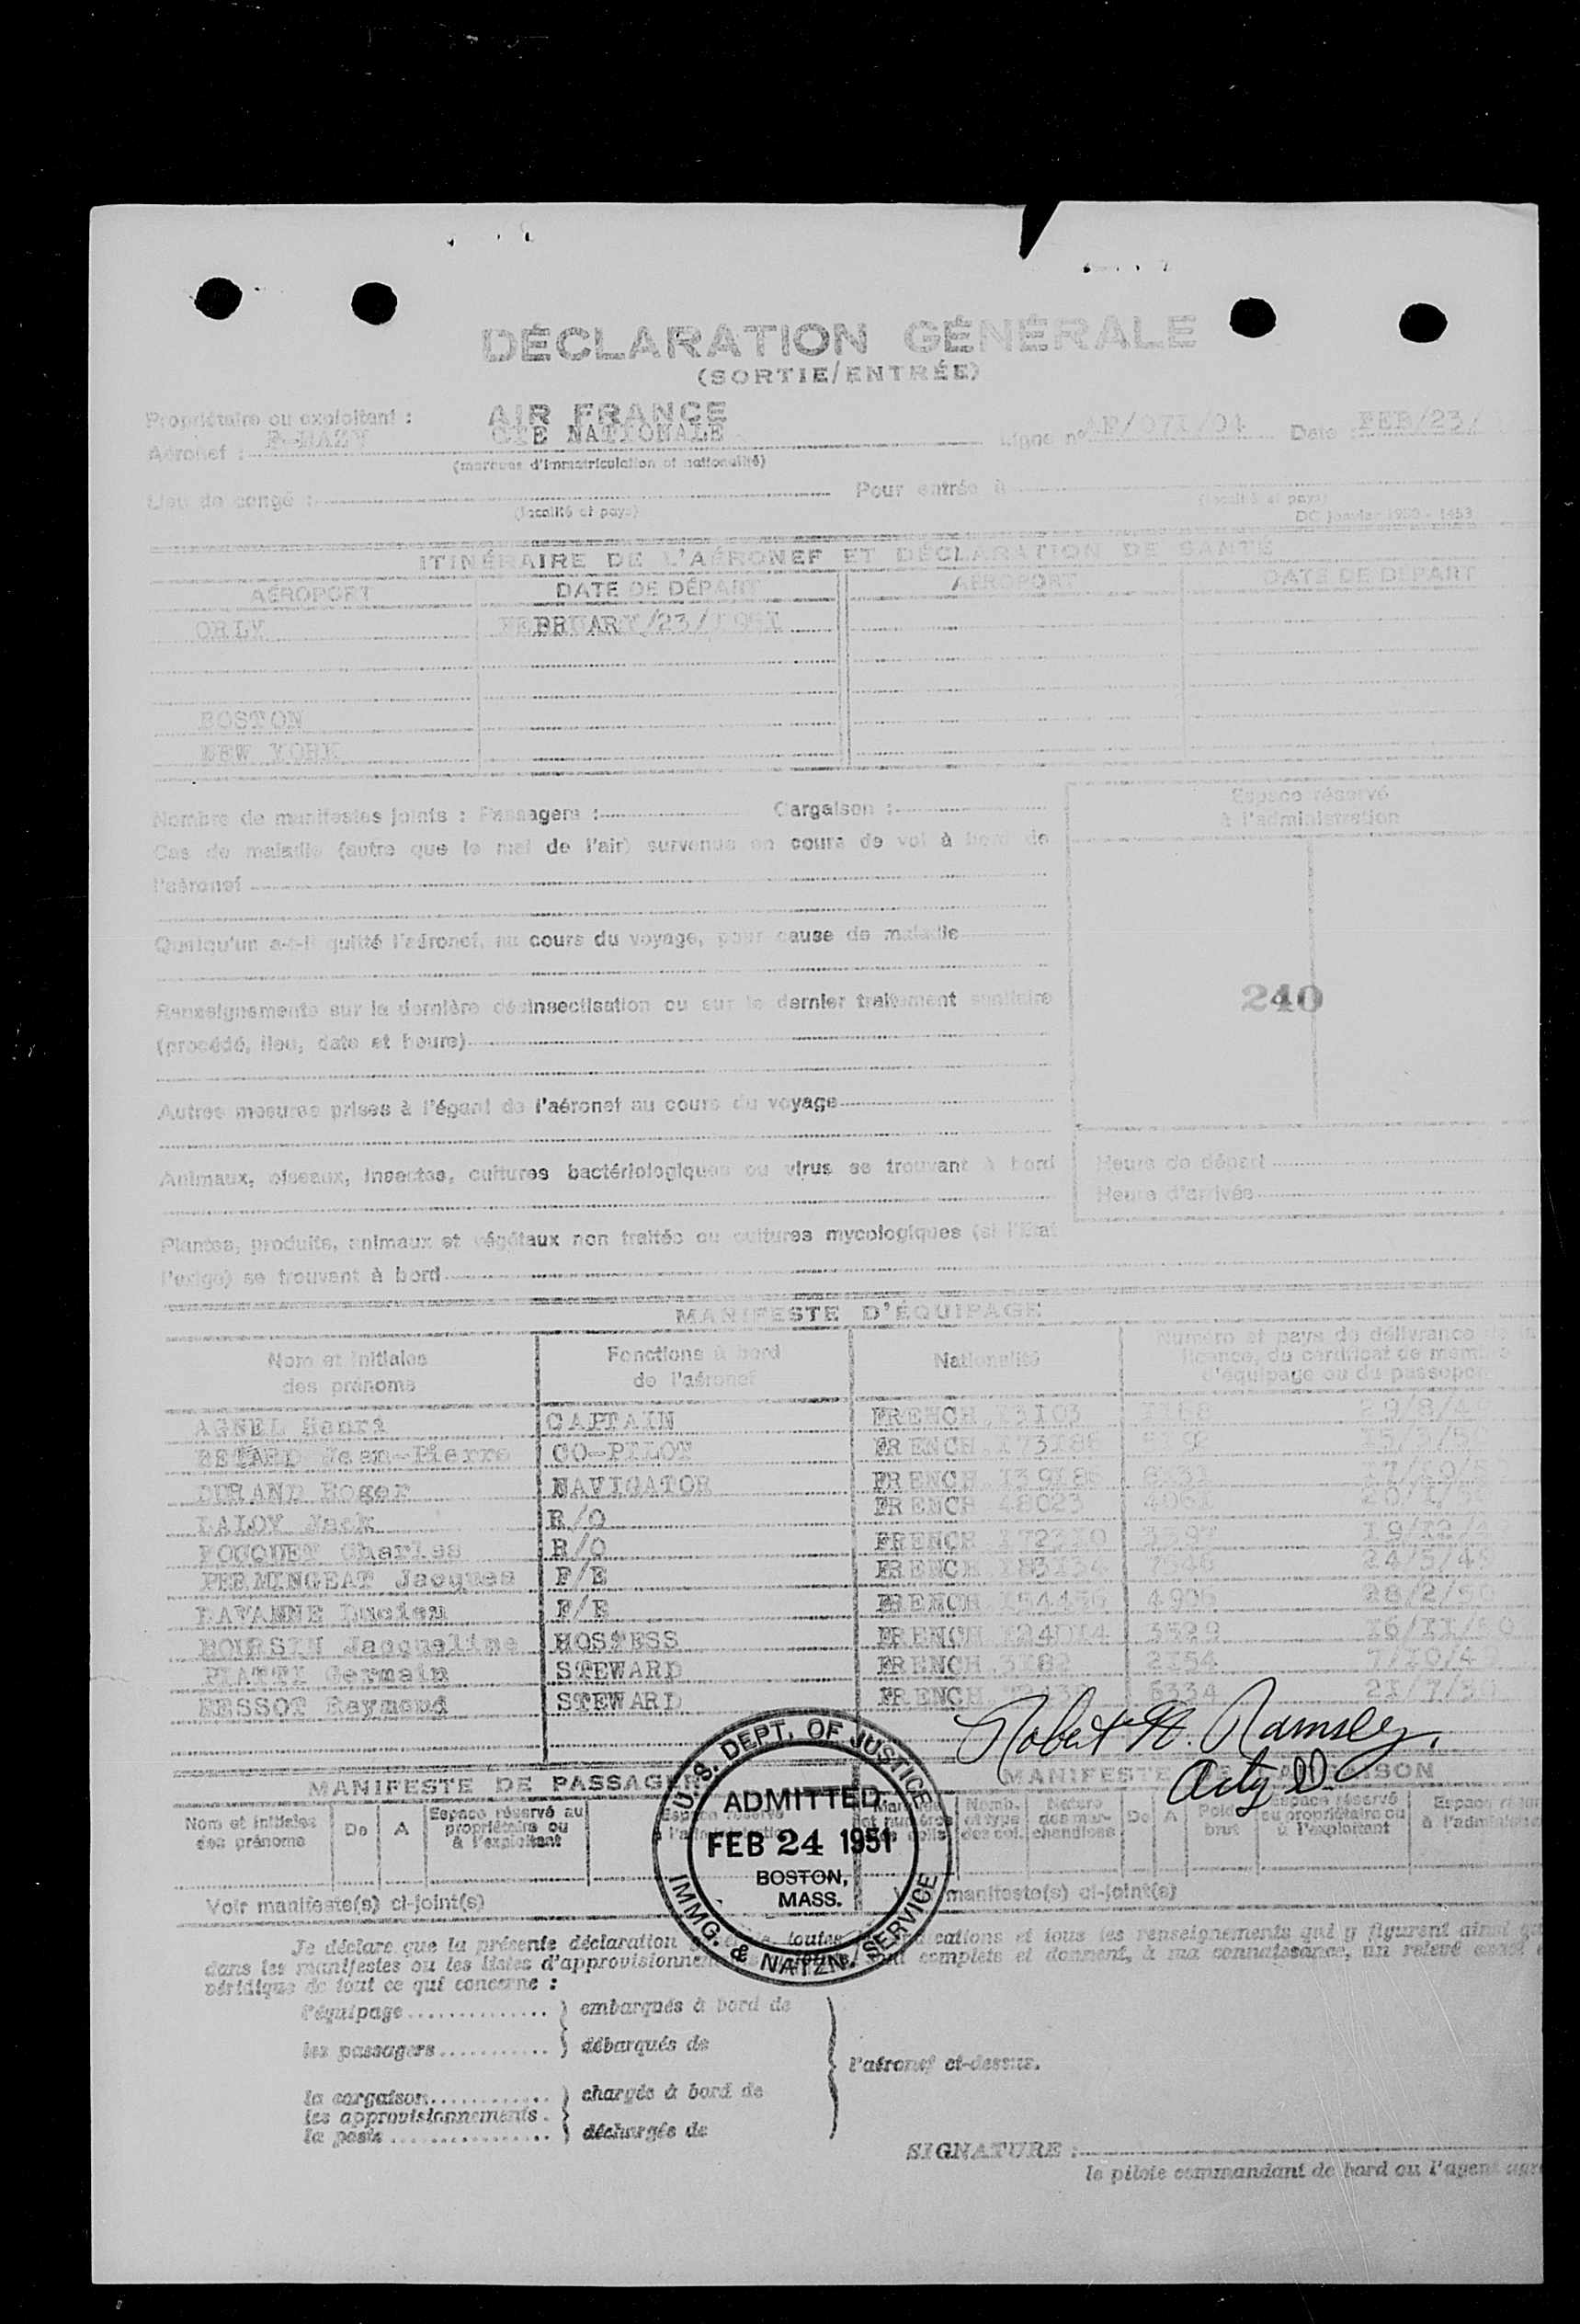 DÉCLARATION GÉNÉRALE
(SORTIE/ENTRÉE)
Propriétaire ou exploitant : AIR FRANCE
Aéronef : CIE NATIONALE Ligne n° AF/071/04 Date : FEB/23/
(marques d'immatriculation et nationalité)
Lieu de congé : Pour entrée à
(localité et pays) (localité et pays)
DC janvier 1950 - 1453
ITINÉRAIRE DE L'AÉRONEF ET DÉCLARATION DE SANTÉ
AÉROPORT DATE DE DÉPART AÉROPORT DATE DE DÉPART
ORLY FEBRUARY/23/1951
BOSTON
NEW YORK
Nombre de manifestes joints : Passagers : Cargaison :
Espace réservé
à l'administration
Cas de maladie (autre que le mal de l'air) survenus en cours de vol à bord de
l'aéronef
Quelqu'un a-t-il quitté l'aéronef, au cours du voyage, pour cause de maladie
Renseignements sur la dernière désinsectisation ou sur le dernier traitement sanitaire
240
(procédé, lieu, date et heure)
Autres mesures prises à l'égard de l'aéronef au cours du voyage
Animaux, oiseaux, insectes, cultures bactériologiques ou virus se trouvant à bord
Heure de départ
Heure d'arrivée
Plantes, produits, animaux et végétaux non traités ou cultures mycologiques (si l'Etat
l'exige) se trouvant à bord
MANIFESTE D'ÉQUIPAGE
Nom et initiales des prénoms Fonctions à bord de l'aéronef Nationalité Numéro et pays de délivrance de la licence, du certificat de membre d'équipage ou du passeport
AGNEL Henri CAPTAIN FRENCH 13103 29/8/
Jean-Pierre CO-PILOT FRENCH
DURAND Roger NAVIGATOR FRENCH
LALOY Jack R/O FRENCH 48023
POCQUET Charles R/O FRENCH 172310 19/12/
PERMINGEAT Jacques F/E FRENCH 183134 24/5/49
RAVANNE Lucien F/E FRENCH 28/2/50
BOURSIN Jacqueline HOSTESS FRENCH 124014 3329 16/11/50
PIATTI Germain STEWARD FRENCH 3182 2154 7/10/49
BESSOT Raymond STEWARD FRENCH 6334 21/7/50
Robert H. Ramsey,
MANIFESTE DE PASSAGERS MANIFESTE DE CARGAISON
Nom et initiales des prénoms De A Espace réservé au propriétaire ou à l'exploitant Espace réservé à l'administration Nomb. et type des col. Nature des marchandises De A Poids brut Espace réservé au propriétaire ou à l'exploitant
U.S. DEPT. OF JUSTICE
ADMITTED
FEB 24 1951
BOSTON,
MASS.
IMMG. & NATZN. SERVICE
Voir manifeste(s) ci-joint(s) manifeste(s) ci-joint(s)
Je déclare que la présente déclaration toutes indications et tous les renseignements qui y figurent ainsi
dans les manifestes ou les listes d'approvisionnement complets et donnent, à ma connaissance, un relevé exact
véridique de tout ce qui concerne :
l'équipage .............. embarqués à bord de
les passagers ........... débarqués de
l'aéronef ci-dessus.
la cargaison ............ chargés à bord de
les approvisionnements .
la poste ................ déchargés de
SIGNATURE :
le pilote commandant de bord ou l'agent